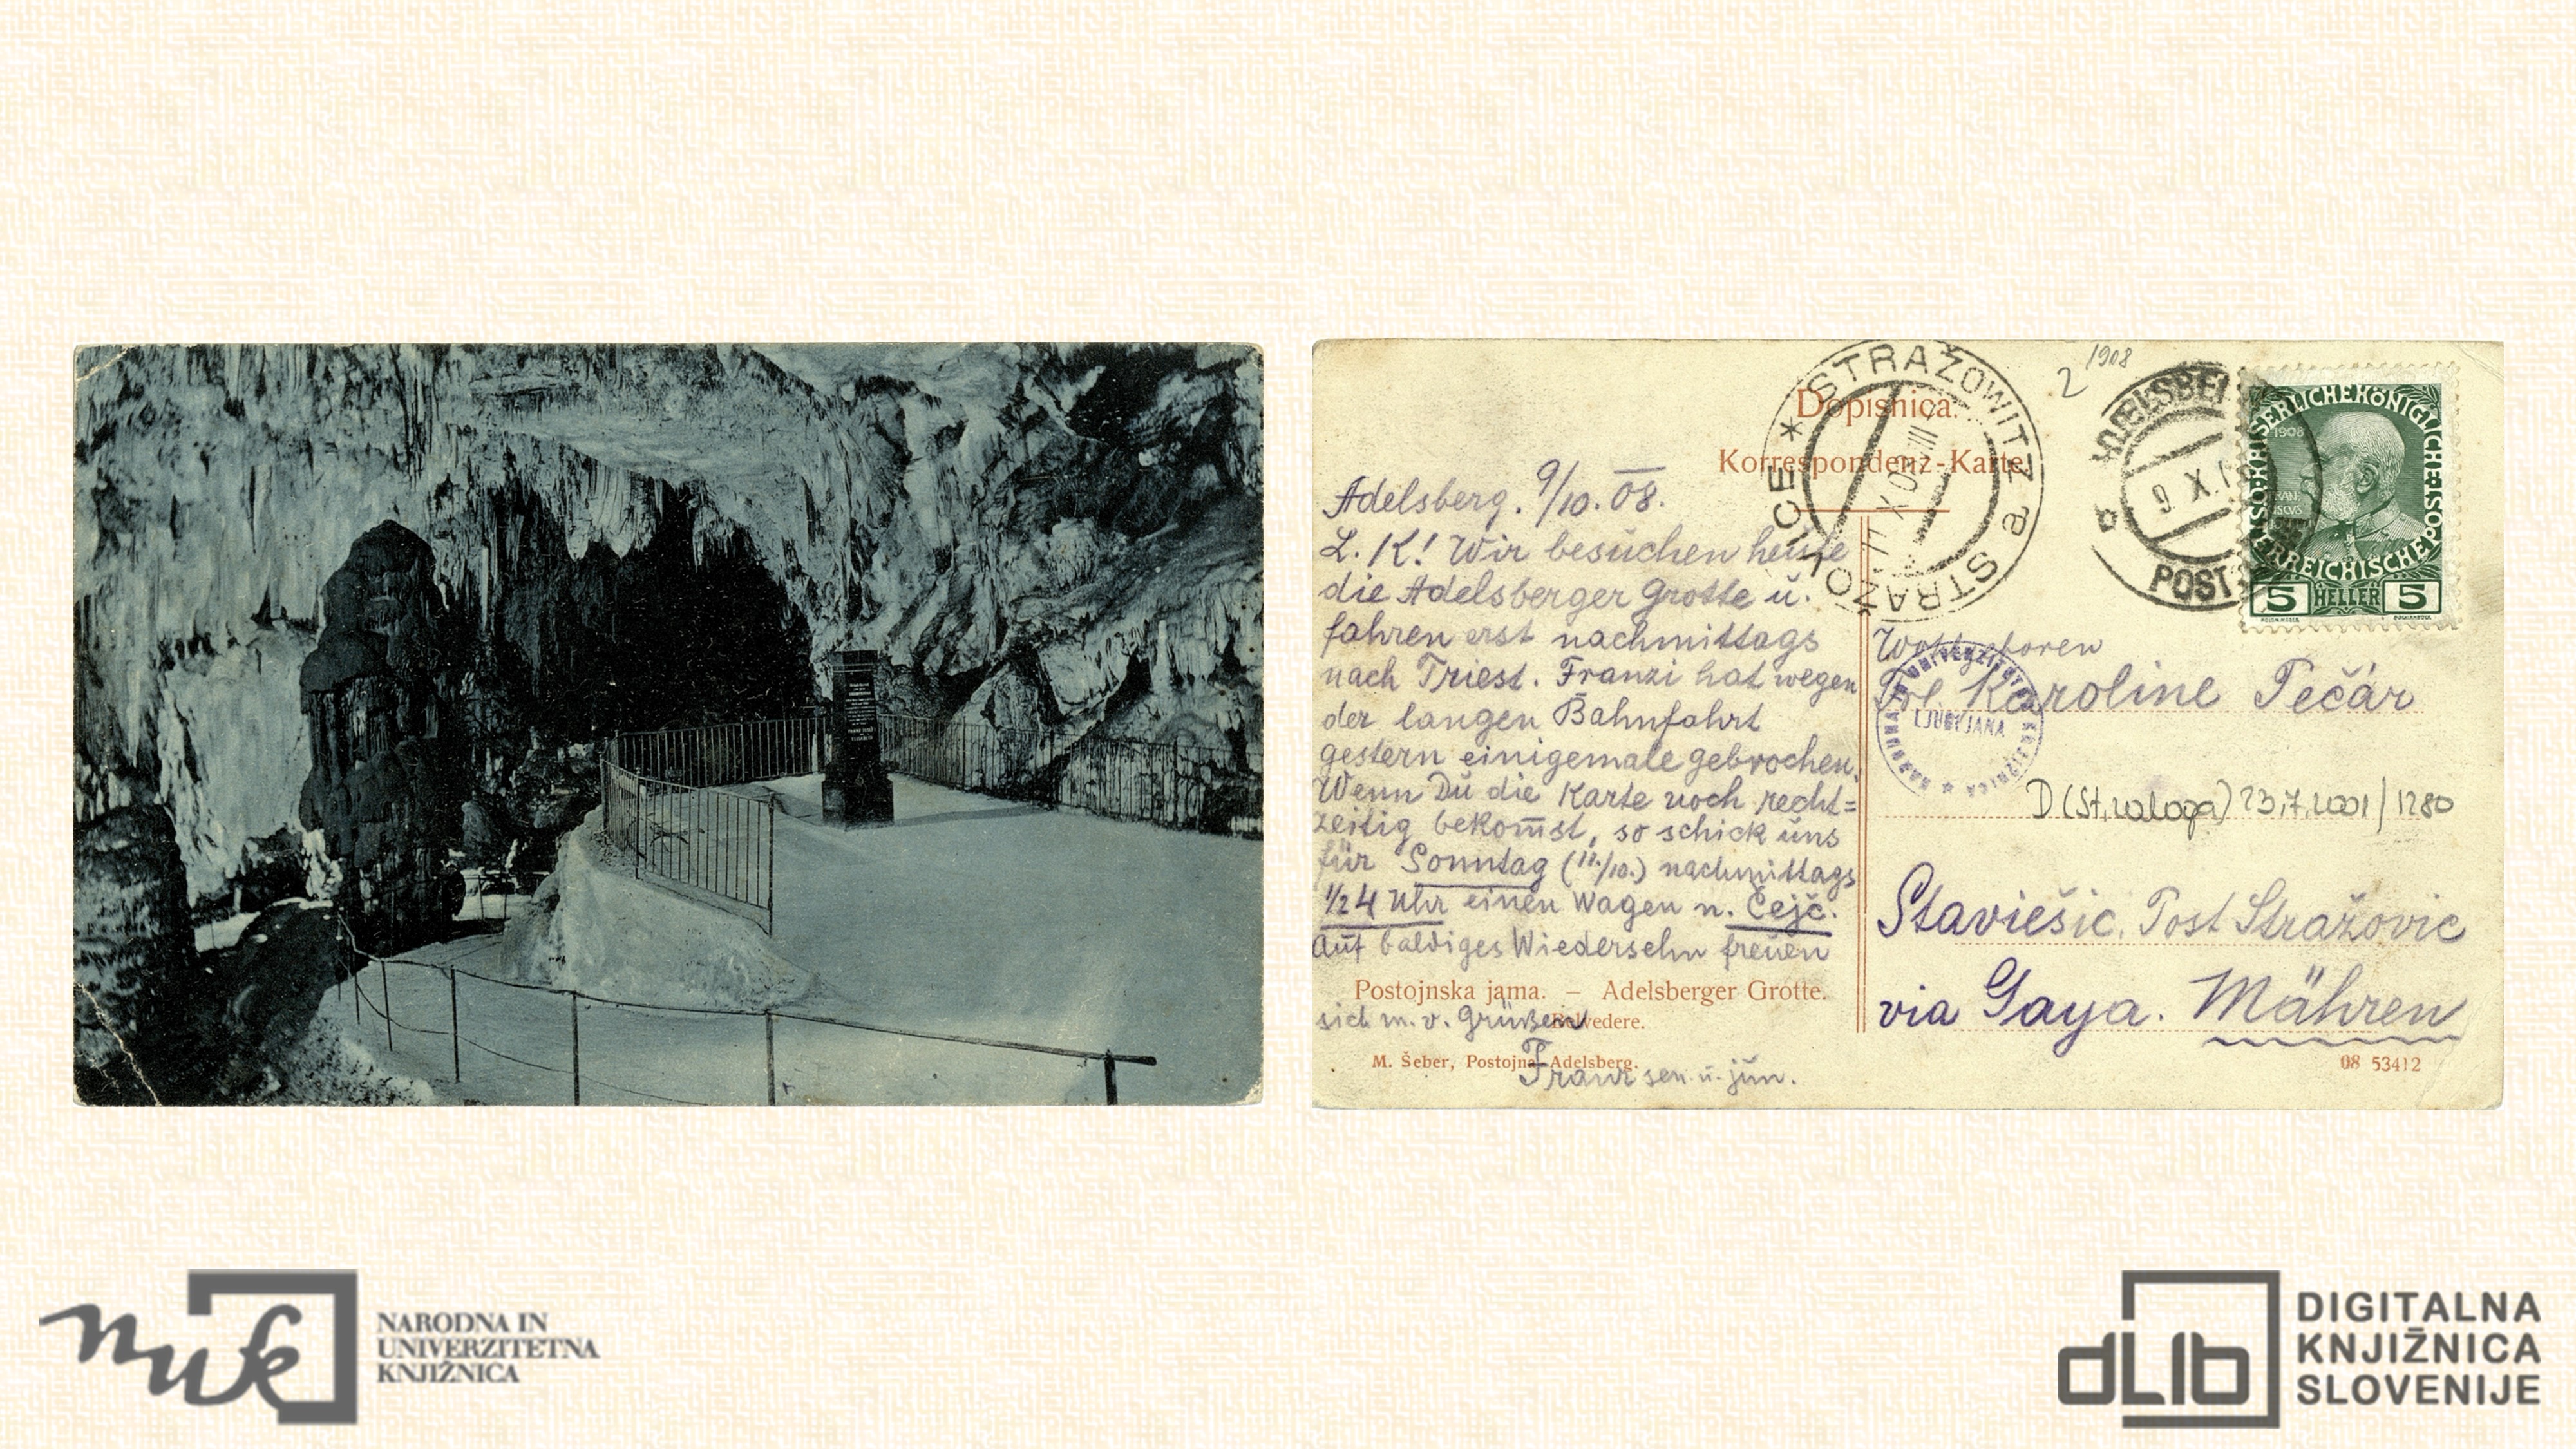 Dopisnica.
Korrespondenz-Karte
Adelsberg. 9/10. 08.
L. K! Wir besuchen heute
die Adelsberger Grotte u.
fahren erst nachmittags
nach Triest. Franzi hat wegen
der langen Bahnfahrt
gestern einigemale gebrochen.
Wenn Du die Karte noch recht=
zeitig bekom̄st, so schick uns
für Sonntag (11./10.) nachmittags
1/2 4 Uhr einen Wagen n. Čejč.
Auf baldiges Wiedersehn freuen
Postojnska jama. – Adelsberger Grotte.
sich m. v. Grüßen
Belvedere.
M. Šeber, Postojna-Adelsberg.
Franz sen. u. jun.
* STRAŽOWITZ a STRAŽOVICE
2 1908
ADELSBERG
9 X
POST
KAISERLICHE KÖNIGLICHE ÖSTERREICHISCHE POST
1908
5 HELLER 5
Wohlgeboren
Frl Karoline Pečár
NARODNA IN UNIVERZITETNA KNJIŽNICA
LJUBLJANA
D (St. zaloga) 23.7.2001/1280
Staviešic. Post Stražovic
via Gaya. Mähren
08 53412
nuk
NARODNA IN
UNIVERZITETNA
KNJIŽNICA
dLib
DIGITALNA
KNJIŽNICA
SLOVENIJE